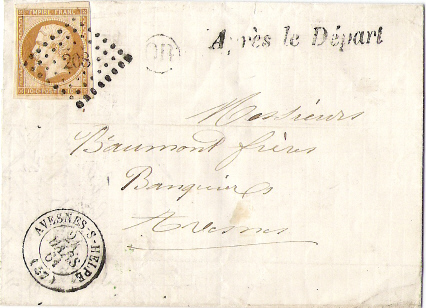 EMPIRE FRANC.
203
OR
Après le Départ
Messieurs
Beaumont frères
Banquiers
Avesnes
AVESNES-S-HELPE
24
MARS
61
(57)